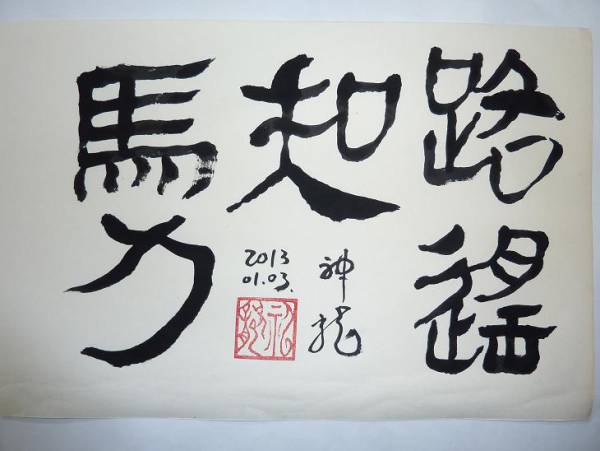 路遙
知
馬力
神龍
2013
01.03.